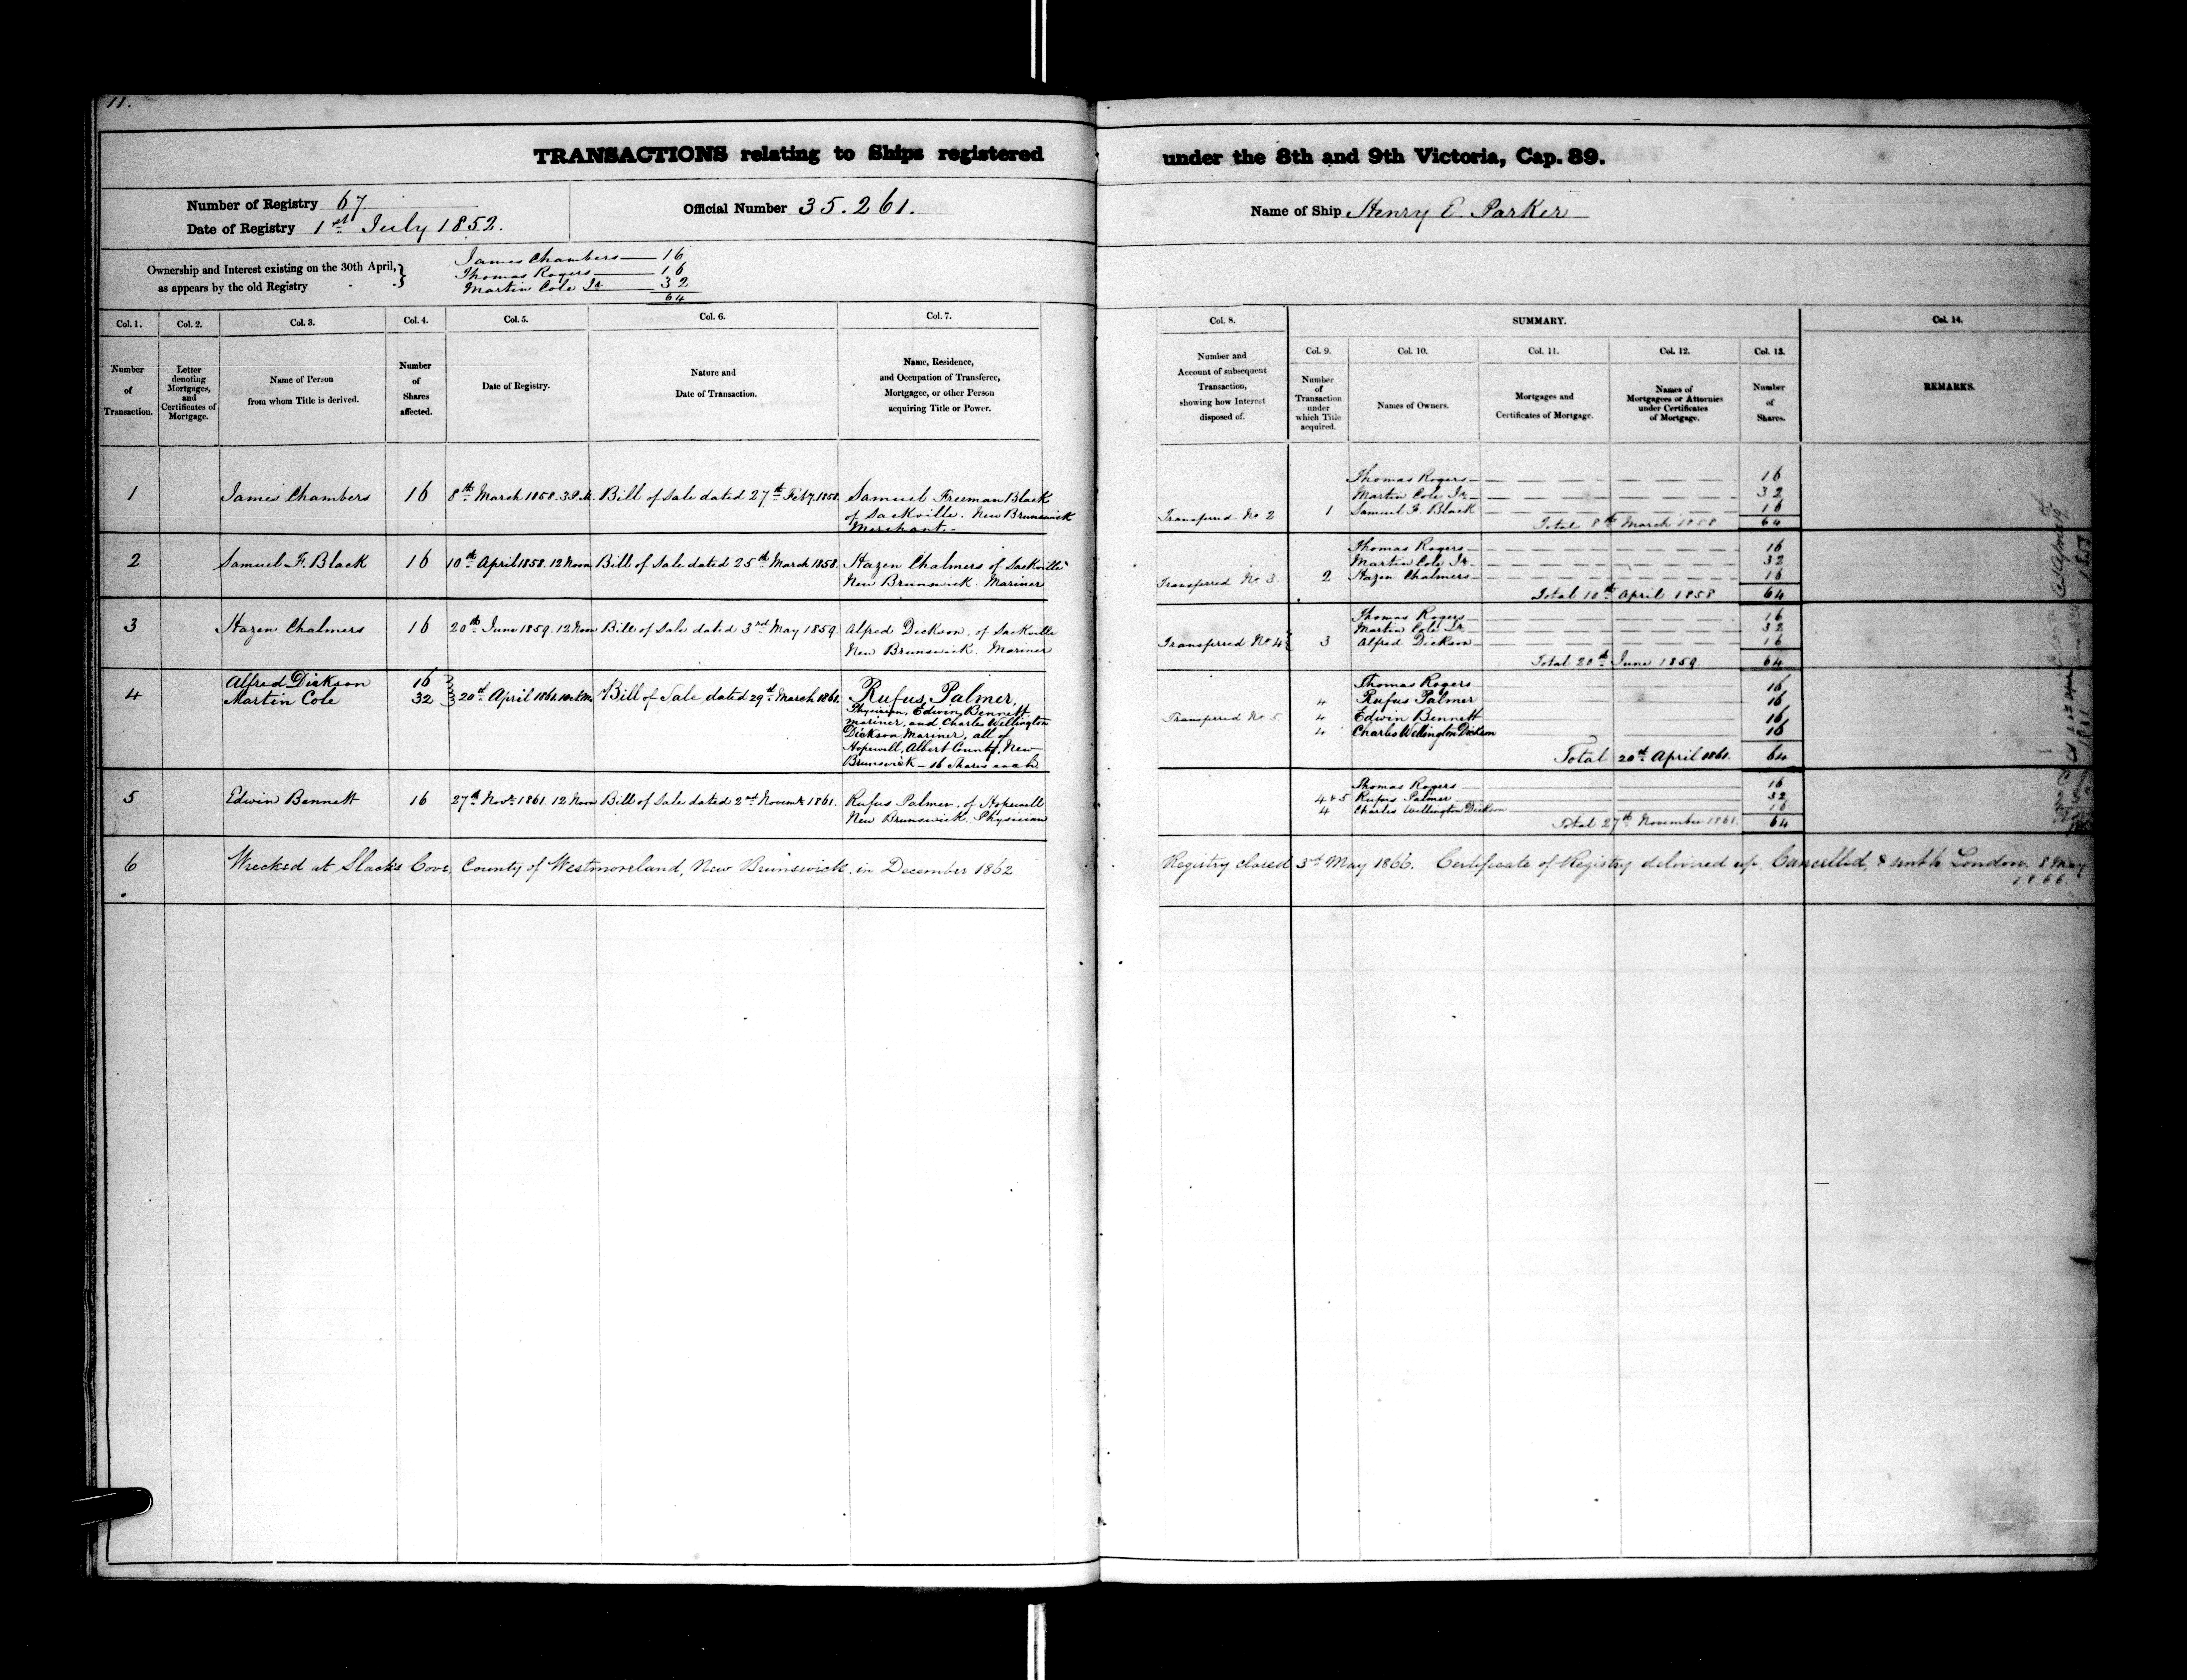 11.
TRANSACTIONS relating to Ships registered under the 8th and 9th Victoria, Cap. 89.
Number of Registry 67
Date of Registry 1st July 1852.
Official Number 35.261.
Name of Ship Henry E. Parker
Ownership and Interest existing on the 30th April, as appears by the old Registry
James Chambers 16
Thomas Rogers 16
Martin Cole Jr 32
64
Col. 1. Col. 2. Col. 3. Col. 4. Col. 5. Col. 6. Col. 7. Col. 8. SUMMARY. Col. 14.
Col. 9. Col. 10. Col. 11. Col. 12. Col. 13.
Number of Transaction.
Letter denoting Mortgages, and Certificates of Mortgage.
Name of Person from whom Title is derived.
Number of Shares affected.
Date of Registry.
Nature and Date of Transaction.
Name, Residence, and Occupation of Transferee, Mortgagee, or other Person acquiring Title or Power.
Number and Account of subsequent Transaction, showing how Interest disposed of.
Number of Transaction under which Title acquired.
Names of Owners.
Mortgages and Certificates of Mortgage.
Names of Mortgagees or Attornies under Certificates of Mortgage.
Number of Shares.
REMARKS.
1 James Chambers 16 8th March 1858. 3 P.M. Bill of Sale dated 27th Feby. 1858. Samuel Freeman Black
of Sackville. New Brunswick
Merchant.
Transferred No 2
Thomas Rogers 16
Martin Cole Jr 32
1 Samuel F. Black 16
Total 8th March 1858 64
2 Samuel F. Black 16 10th April 1858. 12 Noon Bill of Sale dated 25th March 1858. Hazen Chalmers of Sackville
New Brunswick. Mariner
Transferred No 3
Thomas Rogers 16
Martin Cole Jr. 32
2 Hazen Chalmers 16
Total 10th April 1858 64
3 Hazen Chalmers 16 20th June 1859. 12 Noon Bill of Sale dated 3rd May 1859. Alfred Dickson, of Sackville
New Brunswick. Mariner
Transferred No 4
Thomas Rogers 16
Martin Cole Jr. 32
3 Alfred Dickson 16
Total 20th June 1859 64
4 Alfred Dickson 16
Martin Cole 32 20th April 1861 Bill of Sale dated 29th March 1861. Rufus Palmer,
Physician, Edwin Bennett,
mariner, and Charles Wellington
Dickson, Mariner, all of
Hopewell, Albert County, New
Brunswick — 16 Shares each
Transferred No 5.
Thomas Rogers 16
4 Rufus Palmer 16
4 Edwin Bennett 16
4 Charles Wellington Dickson 16
Total 20th April 1861. 64
5 Edwin Bennett 16 27th Novr. 1861. 12 Noon Bill of Sale dated 2nd Novemr. 1861. Rufus Palmer, of Hopewell
New Brunswick. Physician
Thomas Rogers 16
4 & 5 Rufus Palmer 32
4 Charles Wellington Dickson 16
Total 27th November 1861. 64
6 Wrecked at Slack's Cove, County of Westmoreland, New Brunswick, in December 1862
Registry closed 3rd May 1866. Certificate of Registry delivered up, Cancelled, & sent to London, 8 May
1866.